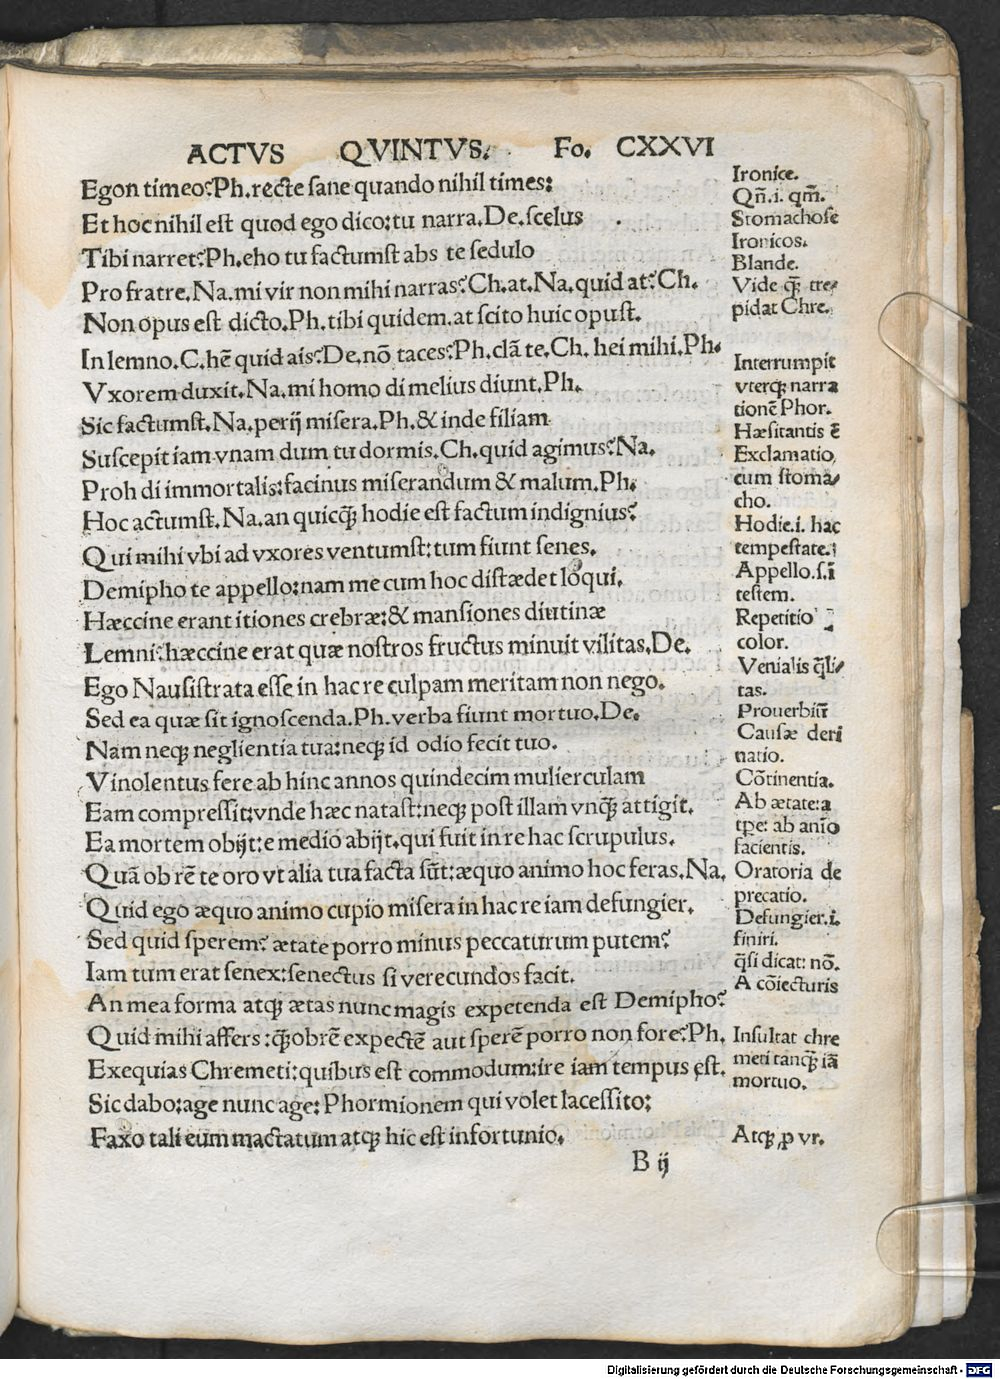 ACTVS QVINTVS. Fo. CXXVI
Egon timeo?Ph.recte sane quando nihil times:
Et hoc nihil est quod ego dico:tu narra.De.scelus
Tibi narret?Ph.eho tu factumst abs te sedulo
Pro fratre.Na.mi vir non mihi narras?Ch.at.Na.quid at?Ch.
Non opus est dicto.Ph.tibi quidem.at scito huic opust.
In lemno.C.hē quid ais?De.nō taces?Ph.clā te.Ch. hei mihi.Ph.
Vxorem duxit.Na.mi homo di melius diunt.Ph.
Sic factumst.Na.perij misera.Ph.& inde filiam
Suscepit iam vnam dum tu dormis.Ch.quid agimus?Na.
Proh di immortalis:facinus miserandum & malum.Ph.
Hoc actumst.Na.an quicq̄ȝ hodie est factum indignius?
Qui mihi vbi ad vxores ventumst:tum fiunt senes.
Demipho te appello:nam me cum hoc distædet loqui.
Hæccine erant itiones crebræ:& mansiones diutinæ
Lemni?hæccine erat quæ nostros fructus minuit vilitas.De.
Ego Nausistrata esse in hac re culpam meritam non nego.
Sed ea quæ sit ignoscenda.Ph.verba fiunt mortuo.De.
Nam neqȝ neglientia tua:neqȝ id odio fecit tuo.
Vinolentus fere ab hinc annos quindecim mulierculam
Eam compressit:vnde hæc natast:neqȝ post illam vnq̄ȝ attigit.
Ea mortem obijt:e medio abijt.qui fuit in re hac scrupulus.
Quā ob rē te oro vt alia tua facta sūt:æquo animo hoc feras.Na.
Quid ego æquo animo cupio misera in hac re iam defungier.
Sed quid sperem? ætate porro minus peccaturum putem?
Iam tum erat senex:senectus si verecundos facit.
An mea forma atqȝ ætas nunc magis expetenda est Demipho?
Quid mihi affers :q̄ȝobrē expectē aut sperē porro non fore?Ph.
Exequias Chremeti:quibus est commodum:ire iam tempus est.
Sic dabo:age nunc age: Phormionem qui volet lacessito:
Faxo tali eum mactatum atqȝ hic est infortunio.
B ij
Ironice.
Qñ.i. qm̄.
Stomachose
Ironicos.
Blande.
Vide q̄ȝ tre/
pidat Chre.
Interrumpit
vterqȝ narra
tionē Phor.
Hæsitantis ē
Exclamatio
cum stoma/
cho.
Hodie.i. hac
tempestate.
Appello.s.ī
testem.
Repetitio
color.
Venialis q̄li/
tas.
Prouerbiū
Causæ deri
natio.
Cōtinentia.
Ab ætate:a
tpe: ab anīo
facientis.
Oratoria de
precatio.
Defungier.i.
finiri.
q̄si dicat: nō.
A cōiecturis
Insultat chre
meti tanq̄ȝ iā
mortuo.
Atqȝ ,p vr.
Digitalisierung gefördert durch die Deutsche Forschungsgemeinschaft - DFG